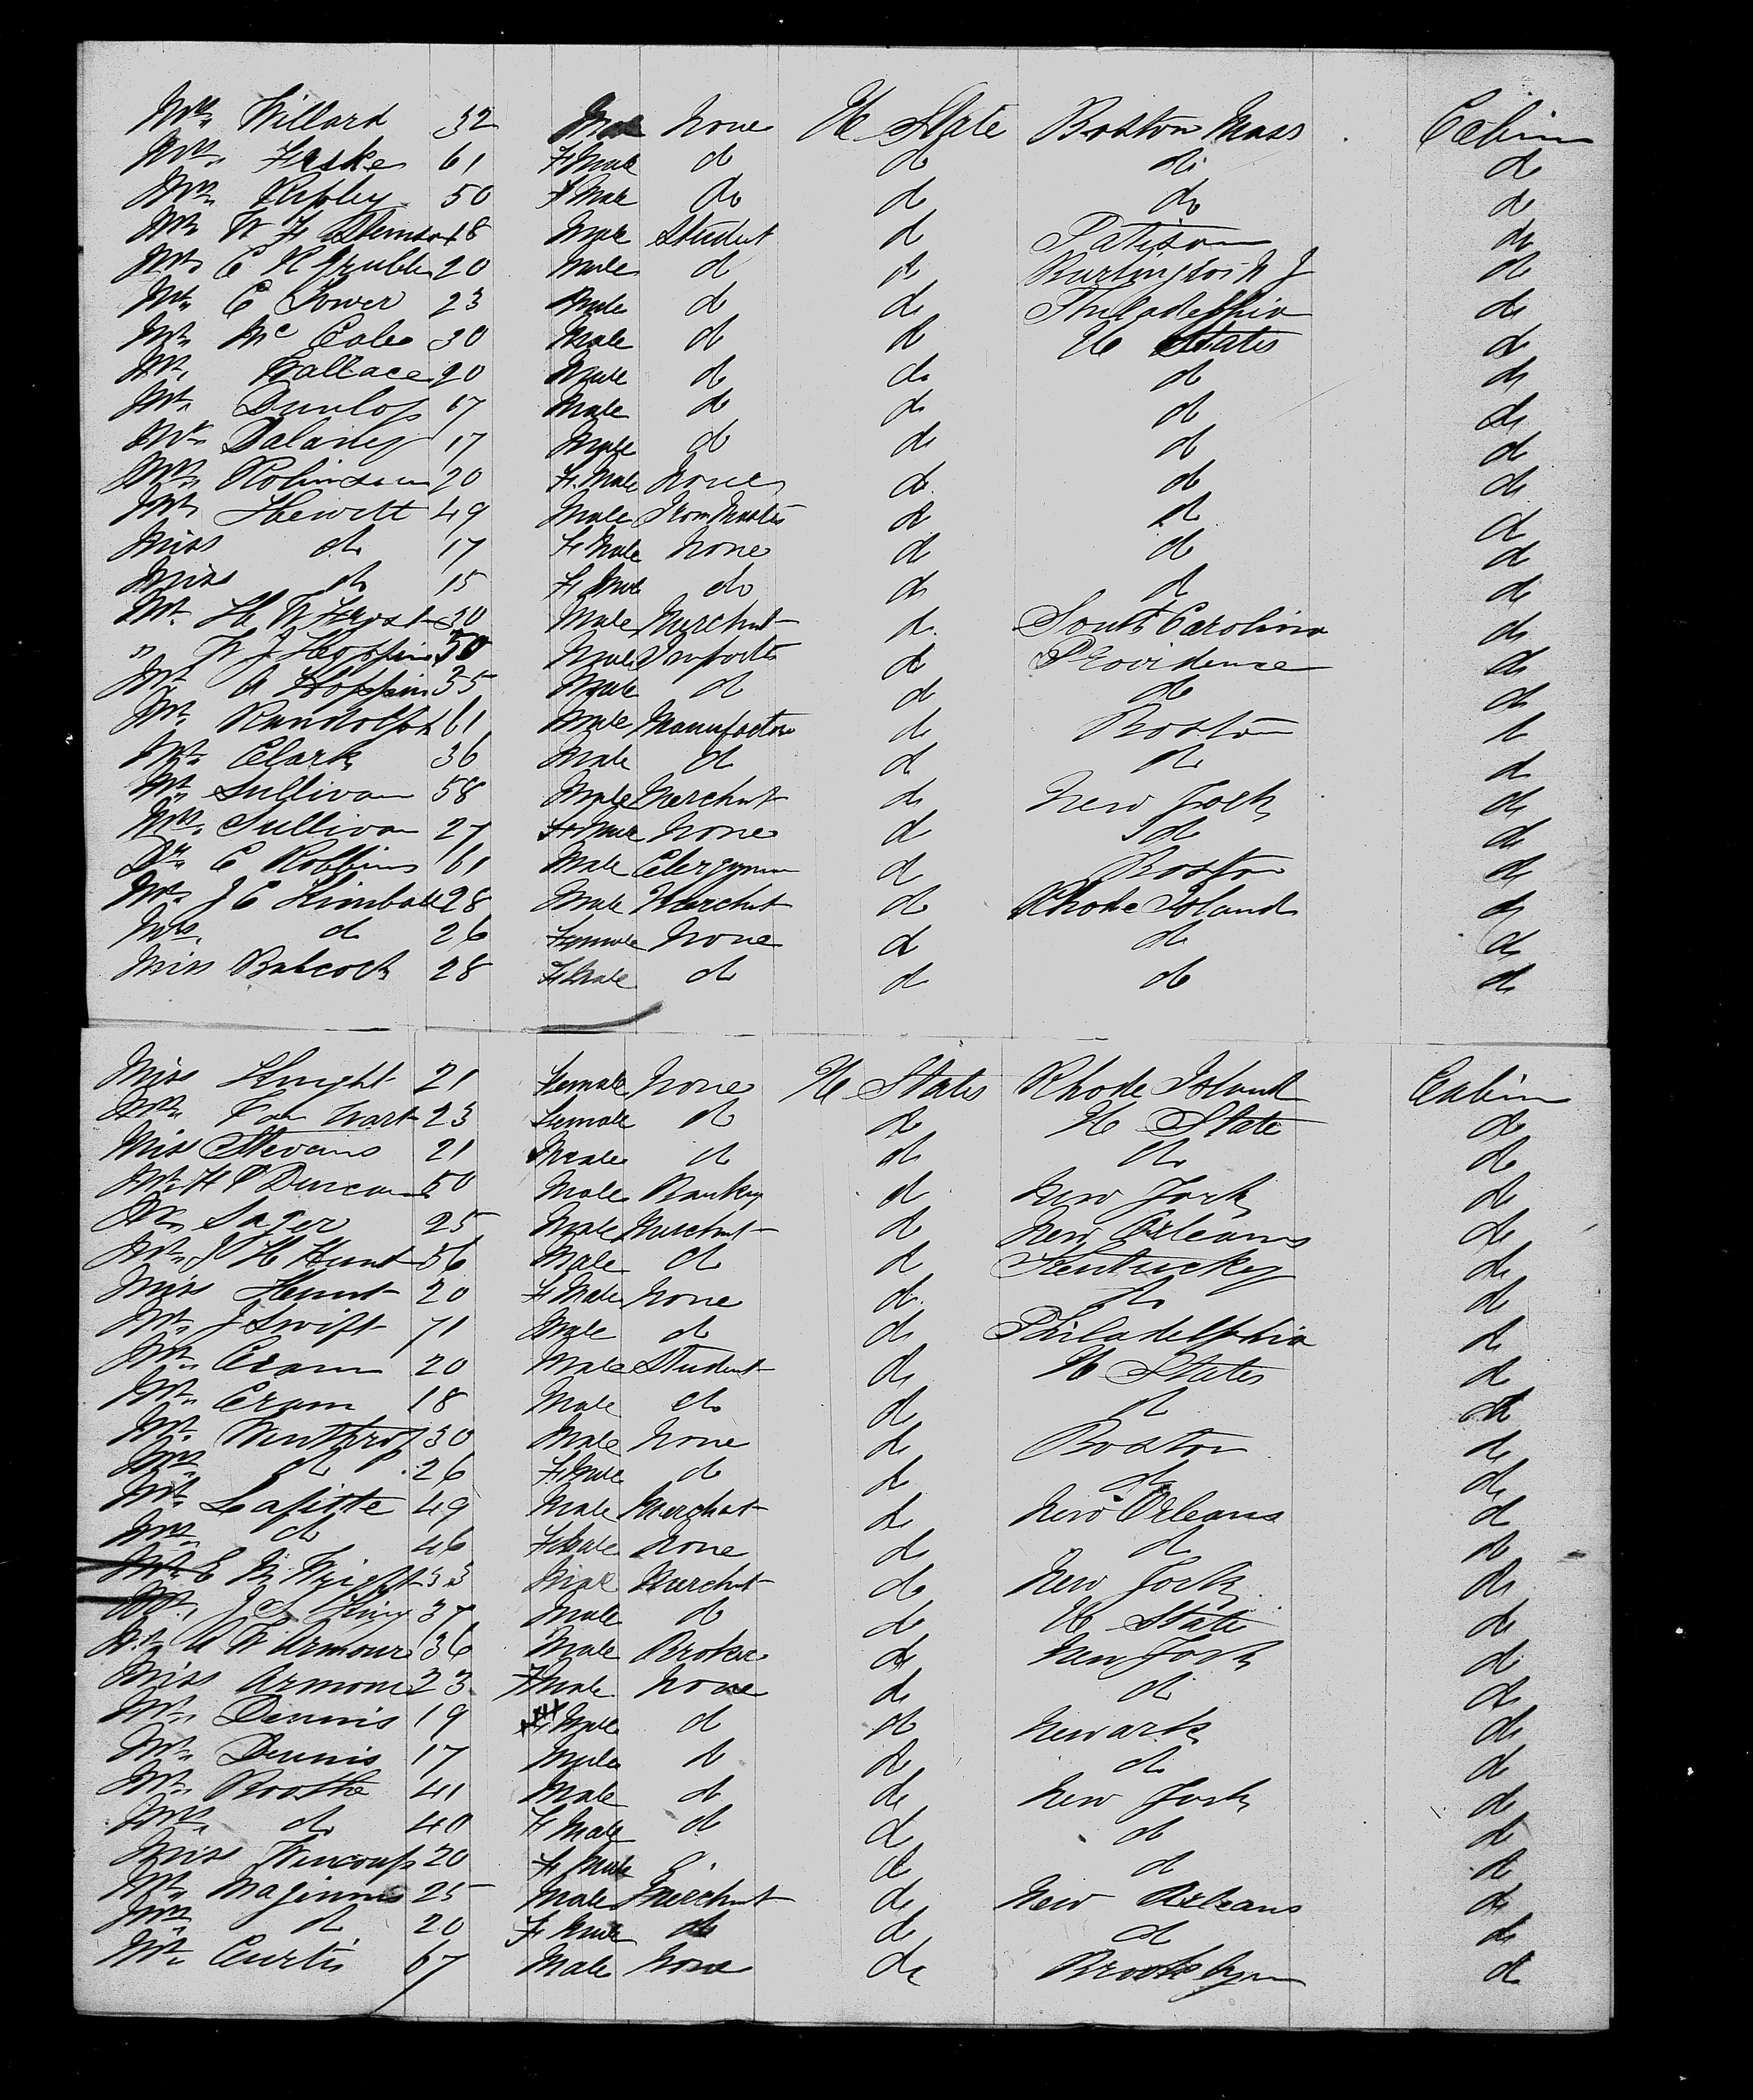 Mrs Willard 32 Male None U States Boston Mass Cabin
Mrs Fiske 61 F Male d d do d
Mrs Ripley 50 F Male do d do d
Mr W F Stimson 18 Male Student d d
Mr C H Grubb 20 Male d d Burlington N J d
Mr C Tower 23 Male d d Philadelphia d
Mr Mc Cale 30 Male d d U States d
Mr Wallace 20 Male d d d d
Mr Dunlop 17 Male d d d d
Mr 17 Male d d d d
Mrs Robinson 20 F. Male None d d d
Mr Hewitt 49 Male Iron Master d d d
Miss d 17 F Male None d d d
Miss d 15 F Male do d d d
Mr. H W Frost 30 Male Merchant d South Carolina d
" W J Hoppin 50 Male Importer d Providence d
Mr A Hoppin 35 Male d d do d
Mr Randolph 61 Male Manufactor d Boston d
Mr Clark 36 Male d d d d
Mr Sullivan 58 Male Merchant d New York d
Mrs Sullivan 27 F Male None d do d
Dr C Robbins 61 Male Clergyman d Boston d
Mr J C Kimball 28 Male Merchant d Rhode Island d
Mrs d 26 Female None d d d
Miss Babcock 28 F Male d d do d
Miss Knight 21 Female None U States Rhode Island Cabin
Mrs Van Wart 23 Female d d U State d
Miss Stevens 21 Male d d d d
Mr H P Duncan 50 Male Banker d New York d
Mr Sager 25 Male Merchant d New Orleans d
Mr J H Hunt 56 Male d d Kentucky d
Miss Hunt 20 F Male None d d d
Mr J Swift 71 Male d d Philadelphia d
Mr Cram 20 Male Student d U States d
Mr Cram 18 Male do d d d
Mr Winthrop 30 Male None d Boston d
Mrs d 26 F. Male d d d d
Mr Lafitte 49 Male Merchant d New Orleans d
Mrs d 46 F Male None d d d
Mr E N Wright 33 Male Merchant d New York d
Mr J S King 37 Male d d U State d
Mr A W Armour 36 Male Broker d New York d
Miss Armour 23 F Male None d d d
Mr Dennis 19 Male d d Newark d
Mr Dennis 17 Male d d d d
Mr Boothe 41 Male d d New York d
Mrs d 40 F Male d d d d
Miss Wincoup 20 F Male d d d
Mr Maginnis 25 Male Merchant d New Orleans d
Mrs d 20 F Male d d d d
Mr Curtis 67 Male None d Brooklyn d